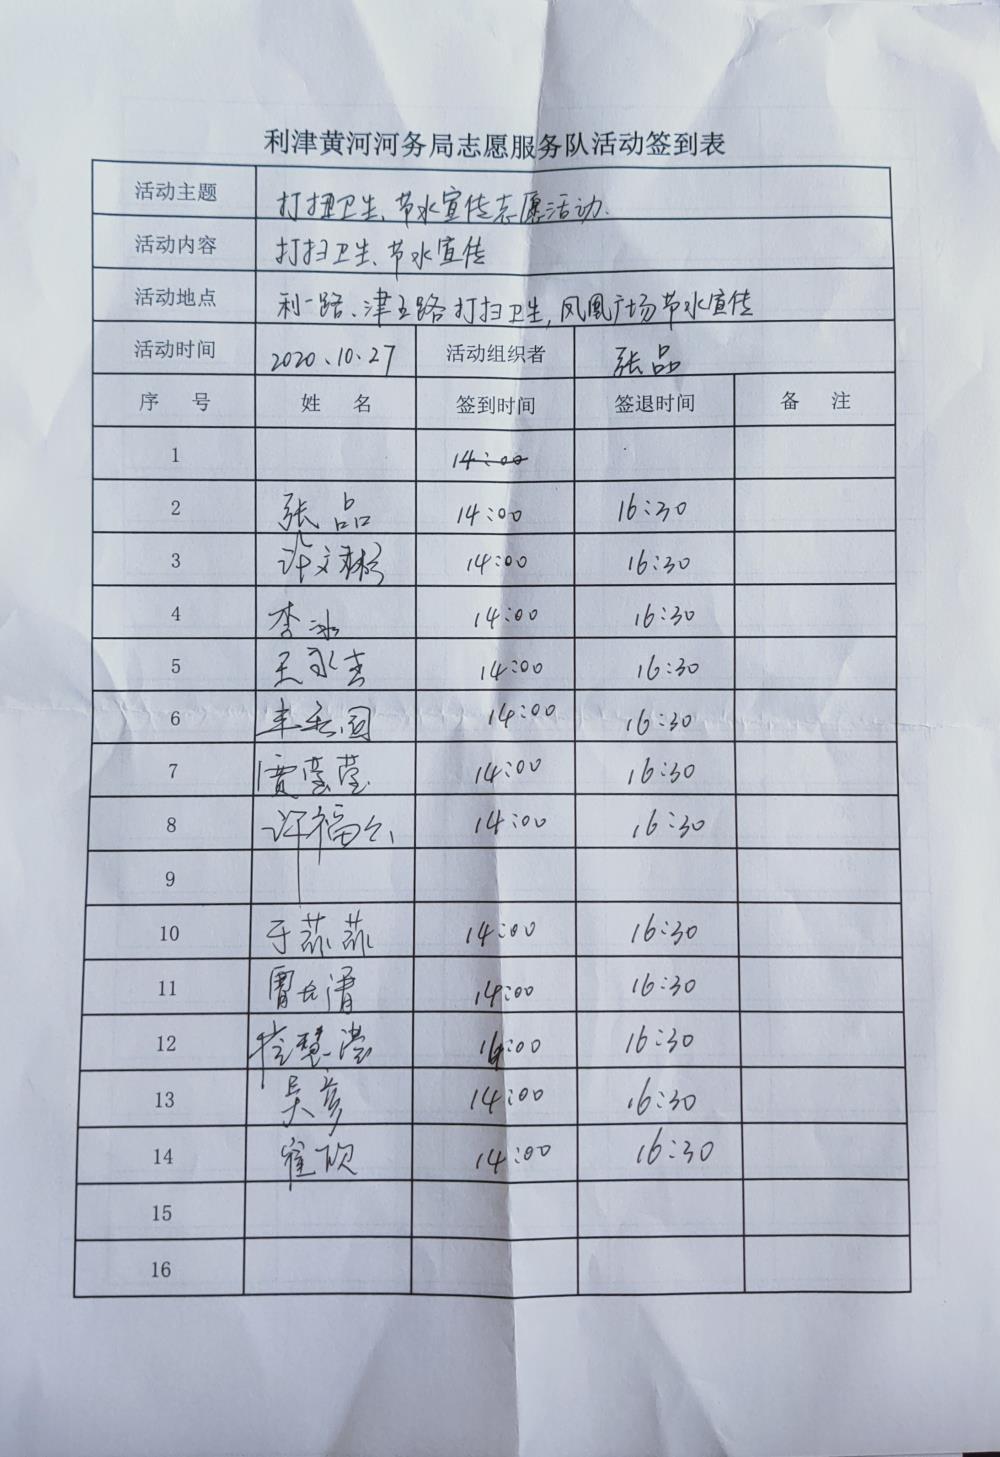 利津黄河河务局志愿服务队活动签到表
活动主题 打扫卫生、节水宣传志愿活动.
活动内容 打扫卫生、节水宣传
活动地点 利一路、津五路打扫卫生,凤凰广场节水宣传
活动时间 2020.10.27 活动组织者 张品
序 号 姓 名 签到时间 签退时间 备 注
1 14:00
2 张品 14:00 16:30
3 许文彬 14:00 16:30
4 李冰 14:00 16:30
5 王永吉 14:00 16:30
6 14:00 16:30
7 贾莹莹 14:00 16:30
8 许福 14:00 16:30
9
10 于菲菲 14:00 16:30
11 14:00 16:30
12 慧滢 14:00 16:30
13 吴彦 14:00 16:30
14 崔欣 14:00 16:30
15
16